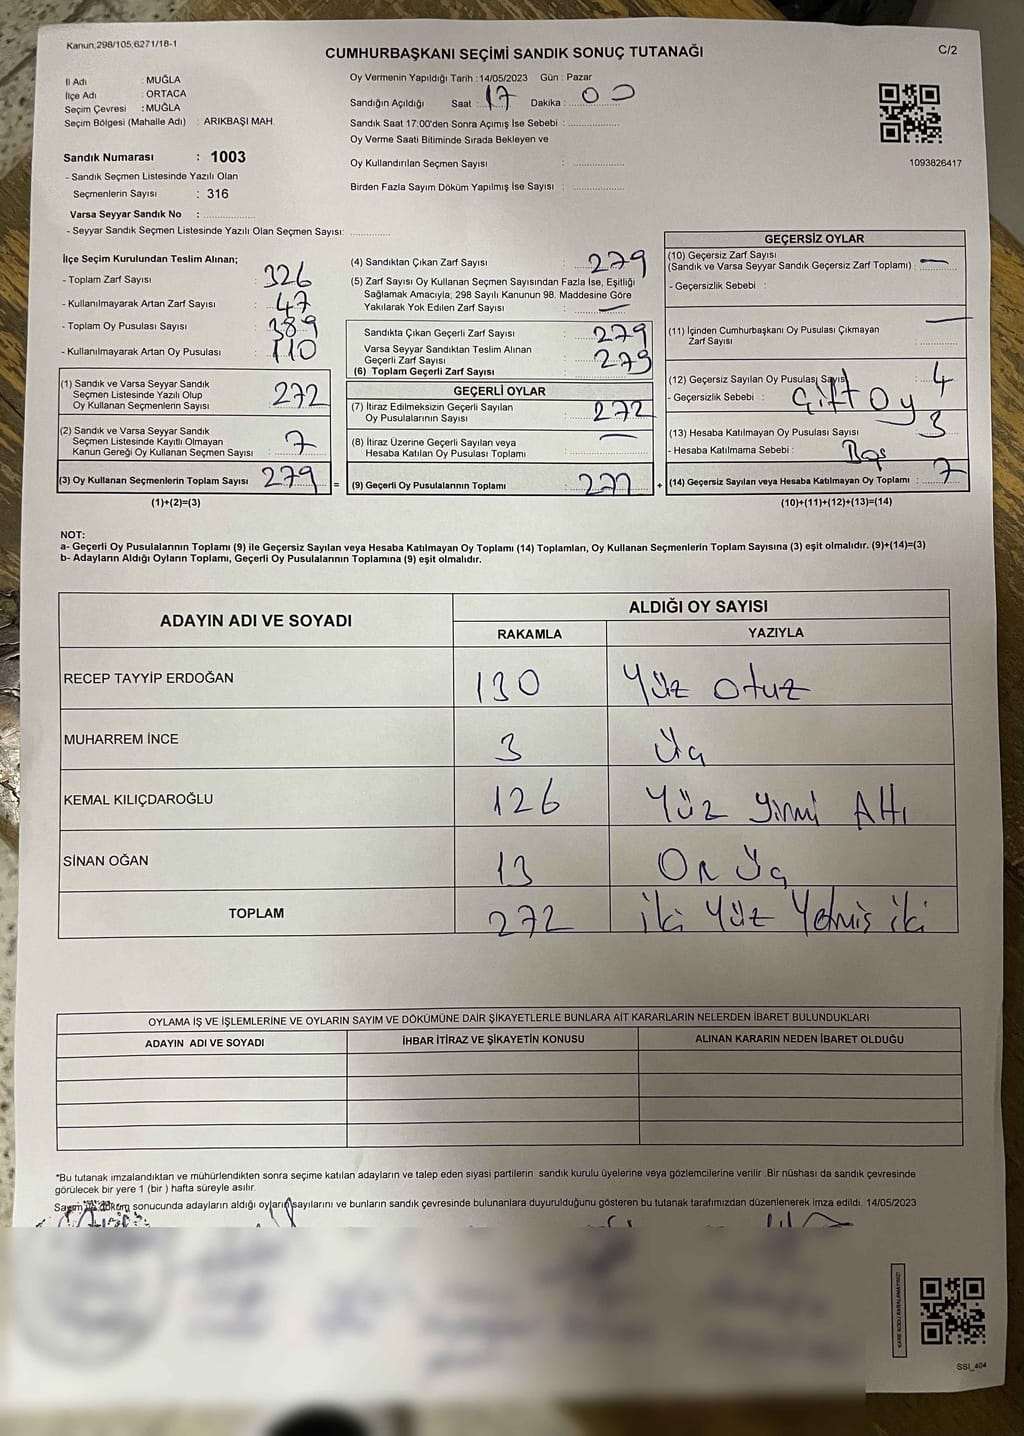 Kanun;298/105;6271/18-1
CUMHURBAŞKANI SEÇİMİ SANDIK SONUÇ TUTANAĞI
C/2
İl Adı : MUĞLA
İlçe Adı : ORTACA
Seçim Çevresi : MUĞLA
Seçim Bölgesi (Mahalle Adı) : ARIKBAŞI MAH.
Sandık Numarası : 1003
- Sandık Seçmen Listesinde Yazılı Olan
Seçmenlerin Sayısı : 316
Varsa Seyyar Sandık No :
- Seyyar Sandık Seçmen Listesinde Yazılı Olan Seçmen Sayısı:
Oy Vermenin Yapıldığı Tarih : 14/05/2023 Gün : Pazar
Sandığın Açıldığı Saat : 17 Dakika : 00
Sandık Saat 17:00'den Sonra Açımış İse Sebebi :
Oy Verme Saati Bitiminde Sırada Bekleyen ve
Oy Kullandırılan Seçmen Sayısı :
Birden Fazla Sayım Döküm Yapılmış İse Sayısı :
1093826417
İlçe Seçim Kurulundan Teslim Alınan;
- Toplam Zarf Sayısı : 326
- Kullanılmayarak Artan Zarf Sayısı : 47
- Toplam Oy Pusulası Sayısı : 389
- Kullanılmayarak Artan Oy Pusulası : 110
(1) Sandık ve Varsa Seyyar Sandık
Seçmen Listesinde Yazılı Olup
Oy Kullanan Seçmenlerin Sayısı : 272
(2) Sandık ve Varsa Seyyar Sandık
Seçmen Listesinde Kayıtlı Olmayan
Kanun Gereği Oy Kullanan Seçmen Sayısı : 7
(3) Oy Kullanan Seçmenlerin Toplam Sayısı 279 =
(1)+(2)=(3)
(4) Sandıktan Çıkan Zarf Sayısı : 279
(5) Zarf Sayısı Oy Kullanan Seçmen Sayısından Fazla İse, Eşitliği
Sağlamak Amacıyla, 298 Sayılı Kanunun 98. Maddesine Göre
Yakılarak Yok Edilen Zarf Sayısı : —
Sandıkta Çıkan Geçerli Zarf Sayısı : 279
Varsa Seyyar Sandıktan Teslim Alınan
Geçerli Zarf Sayısı : 279
(6) Toplam Geçerli Zarf Sayısı :
GEÇERLİ OYLAR
(7) İtiraz Edilmeksizin Geçerli Sayılan
Oy Pusulalarının Sayısı : 272
(8) İtiraz Üzerine Geçerli Sayılan veya
Hesaba Katılan Oy Pusulası Toplamı : —
(9) Geçerli Oy Pusulalarının Toplamı : +
GEÇERSİZ OYLAR
(10) Geçersiz Zarf Sayısı
(Sandık ve Varsa Seyyar Sandık Geçersiz Zarf Toplamı) : —
- Geçersizlik Sebebi :
(11) İçinden Cumhurbaşkanı Oy Pusulası Çıkmayan
Zarf Sayısı : —
(12) Geçersiz Sayılan Oy Pusulası Sayısı : 4
- Geçersizlik Sebebi : Çift Oy
(13) Hesaba Katılmayan Oy Pusulası Sayısı : 3
- Hesaba Katılmama Sebebi : Boş
(14) Geçersiz Sayılan veya Hesaba Katılmayan Oy Toplamı : 7
(10)+(11)+(12)+(13)=(14)
NOT:
a- Geçerli Oy Pusulalarının Toplamı (9) ile Geçersiz Sayılan veya Hesaba Katılmayan Oy Toplamı (14) Toplamları, Oy Kullanan Seçmenlerin Toplam Sayısına (3) eşit olmalıdır. (9)+(14)=(3)
b- Adayların Aldığı Oyların Toplamı, Geçerli Oy Pusulalarının Toplamına (9) eşit olmalıdır.
ADAYIN ADI VE SOYADI
ALDIĞI OY SAYISI
RAKAMLA YAZIYLA
RECEP TAYYİP ERDOĞAN 130 Yüz Otuz
MUHARREM İNCE 3 Üç
KEMAL KILIÇDAROĞLU 126 Yüz Yirmi Altı
SİNAN OĞAN 13 On Üç
TOPLAM 272 İki Yüz Yetmiş iki
OYLAMA İŞ VE İŞLEMLERİNE VE OYLARIN SAYIM VE DÖKÜMÜNE DAİR ŞİKAYETLERLE BUNLARA AİT KARARLARIN NELERDEN İBARET BULUNDUKLARI
ADAYIN ADI VE SOYADI İHBAR İTİRAZ VE ŞİKAYETİN KONUSU ALINAN KARARIN NEDEN İBARET OLDUĞU
*Bu tutanak imzalandıktan ve mühürlendikten sonra seçime katılan adayların ve talep eden siyasi partilerin sandık kurulu üyelerine veya gözlemcilerine verilir .Bir nüshası da sandık çevresinde
görülecek bir yere 1 (bir ) hafta süreyle asılır.
Sayım döküm sonucunda adayların aldığı oyların sayılarını ve bunların sandık çevresinde bulunanlara duyurulduğunu gösteren bu tutanak tarafımızdan düzenlenerek imza edildi. 14/05/2023
KARE KODU KARALAMAYINIZ!
SSI_404